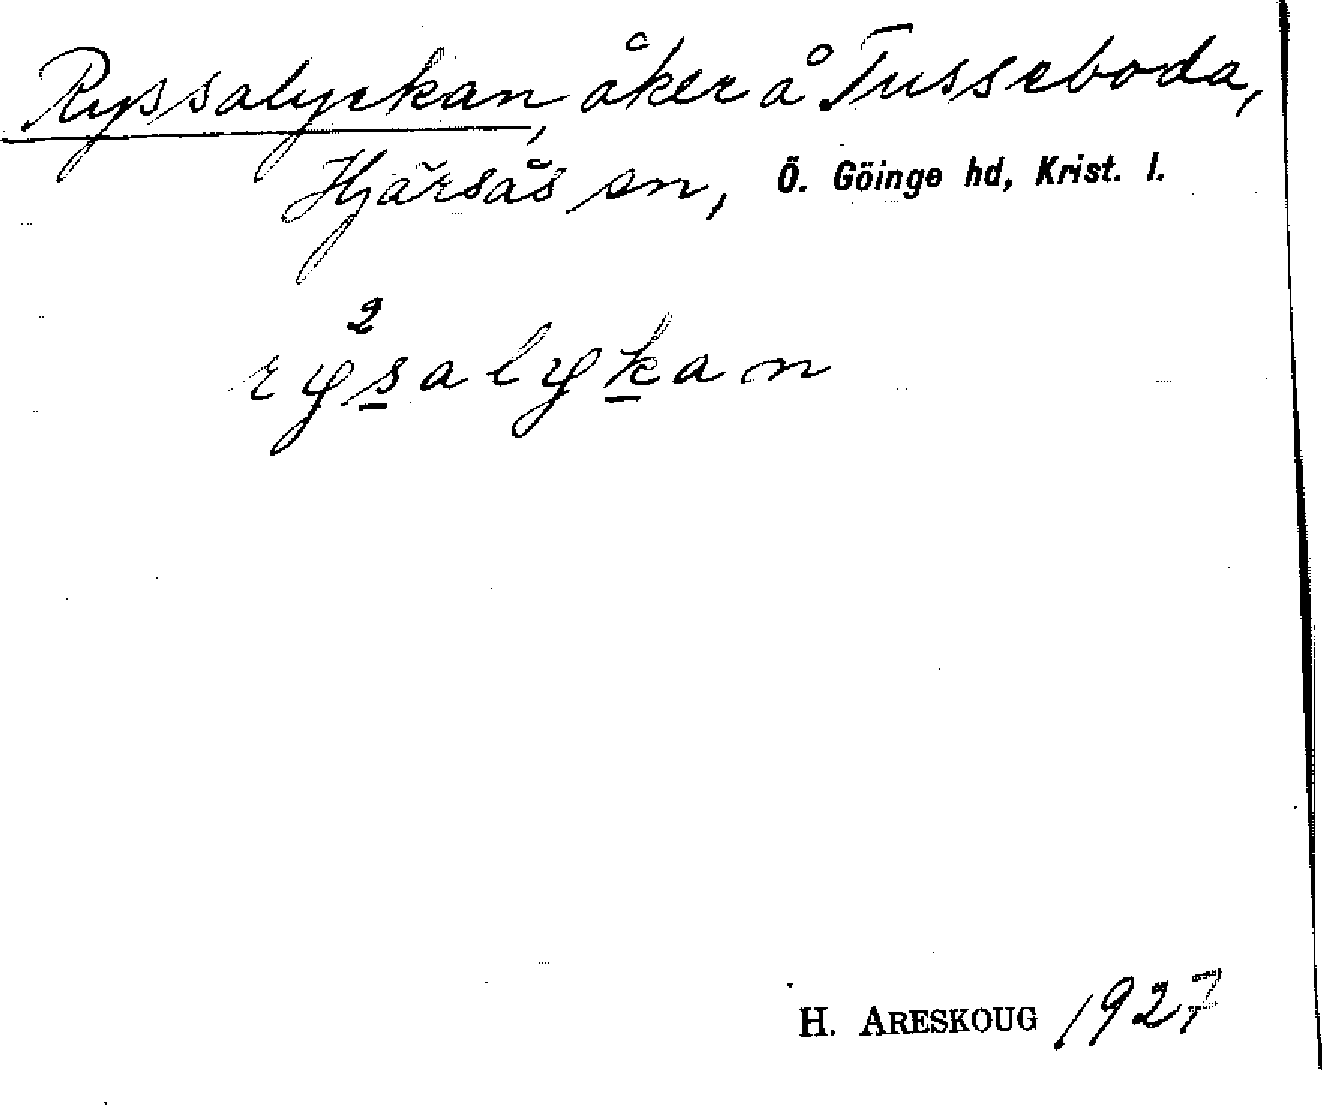 Ryssalyckan, åker å Tusseboda,
Hjärsås sn, Ö. Göinge hd, Krist. l.
2
rysalykan
H. ARESKOUG 1927